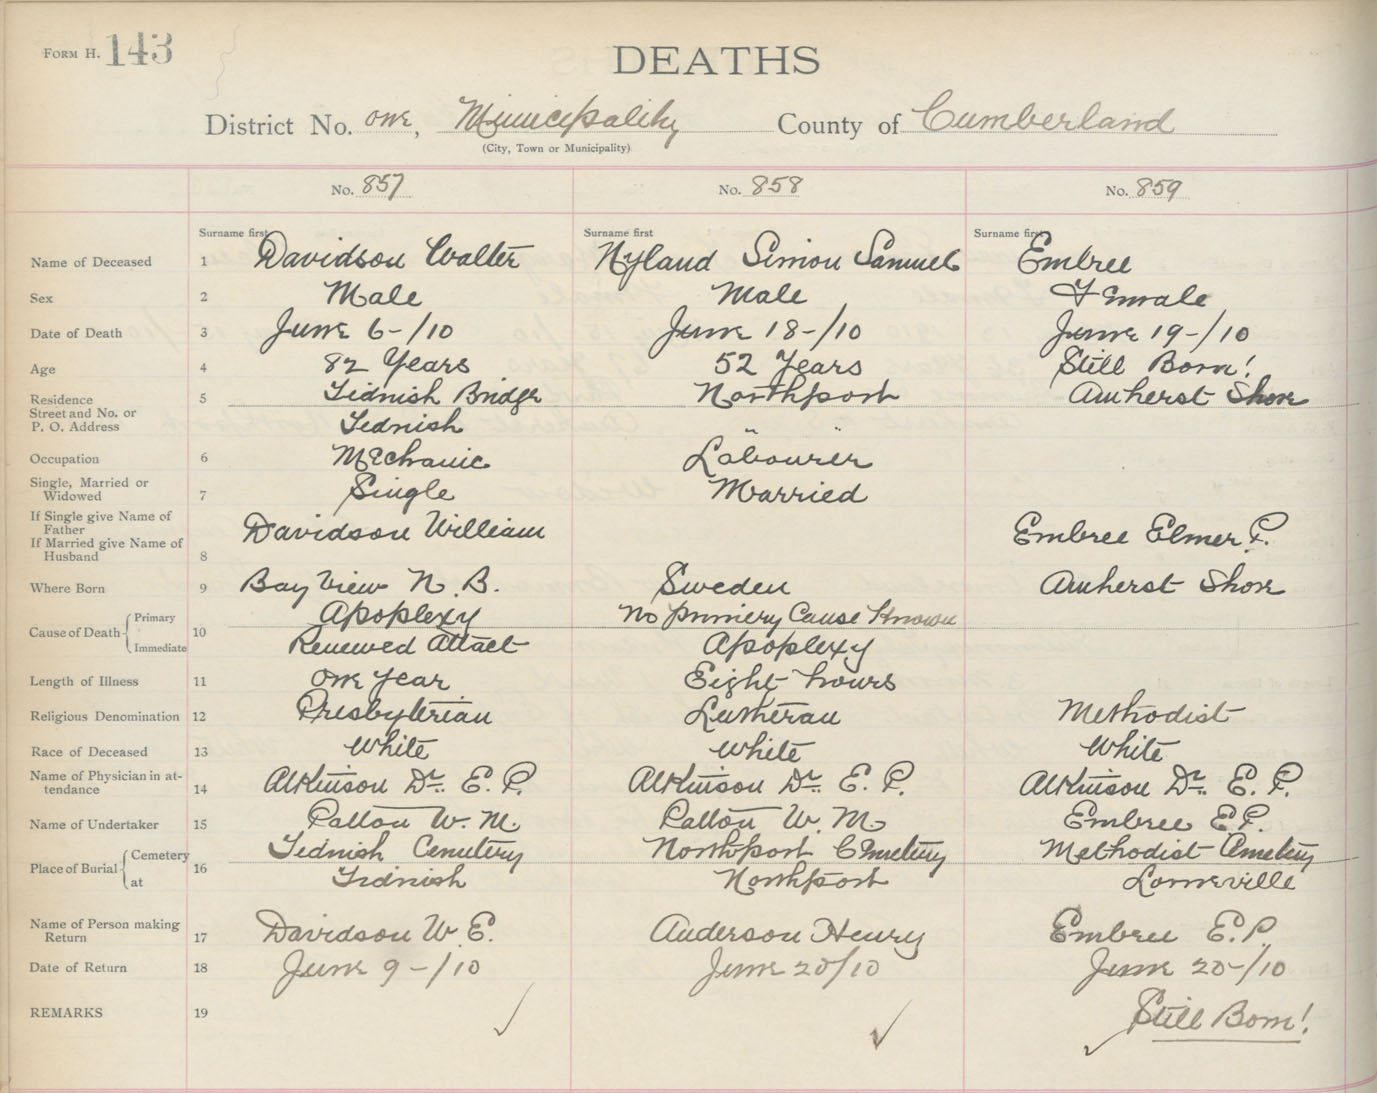 FORM H. 143
DEATHS
District No. one, Municipality County of Cumberland
(City, Town or Municipality)
No. 857 No. 858 No. 859
Surname first Surname first Surname first
Name of Deceased 1 Davidson Walter Nyland Simon Samuel Embree
Sex 2 Male Male Female
Date of Death 3 June 6-/10 June 18-/10 June 19-/10
Age 4 82 Years 52 Years Still Born!
Residence 5 Tidnish Bridge Northport Amherst Shore
Street and No. or
P. O. Address Tidnish " "
Occupation 6 Mechanic Labourer
Single, Married or
Widowed 7 Single Married
If Single give Name of
Father Davidson William Embree Elmer P.
If Married give Name of
Husband 8
Where Born 9 Bay View N.B. Sweden Amherst Shore
Cause of Death 10 Primary Apoplexy No primery Cause Known
Immediate Renewed Attact Apoplexy
Length of Illness 11 one year Eight hours
Religious Denomination 12 Presbyterian Lutheran Methodist
Race of Deceased 13 White White White
Name of Physician in at-
tendance 14 Atkinson Dr. E. P. Atkinson Dr. E. P. Atkinson Dr. E. P.
Name of Undertaker 15 Patton W. M. Patton W. M. Embree E P.
Place of Burial 16 Cemetery Tidnish Cemetery Northport Cemetery Methodist Cemetery
at Tidnish Northport Lorneville
Name of Person making
Return 17 Davidson W. E. Anderson Henry Embree E. P.
Date of Return 18 June 9-/10 June 20/10 June 20-/10
REMARKS 19 Still Born!